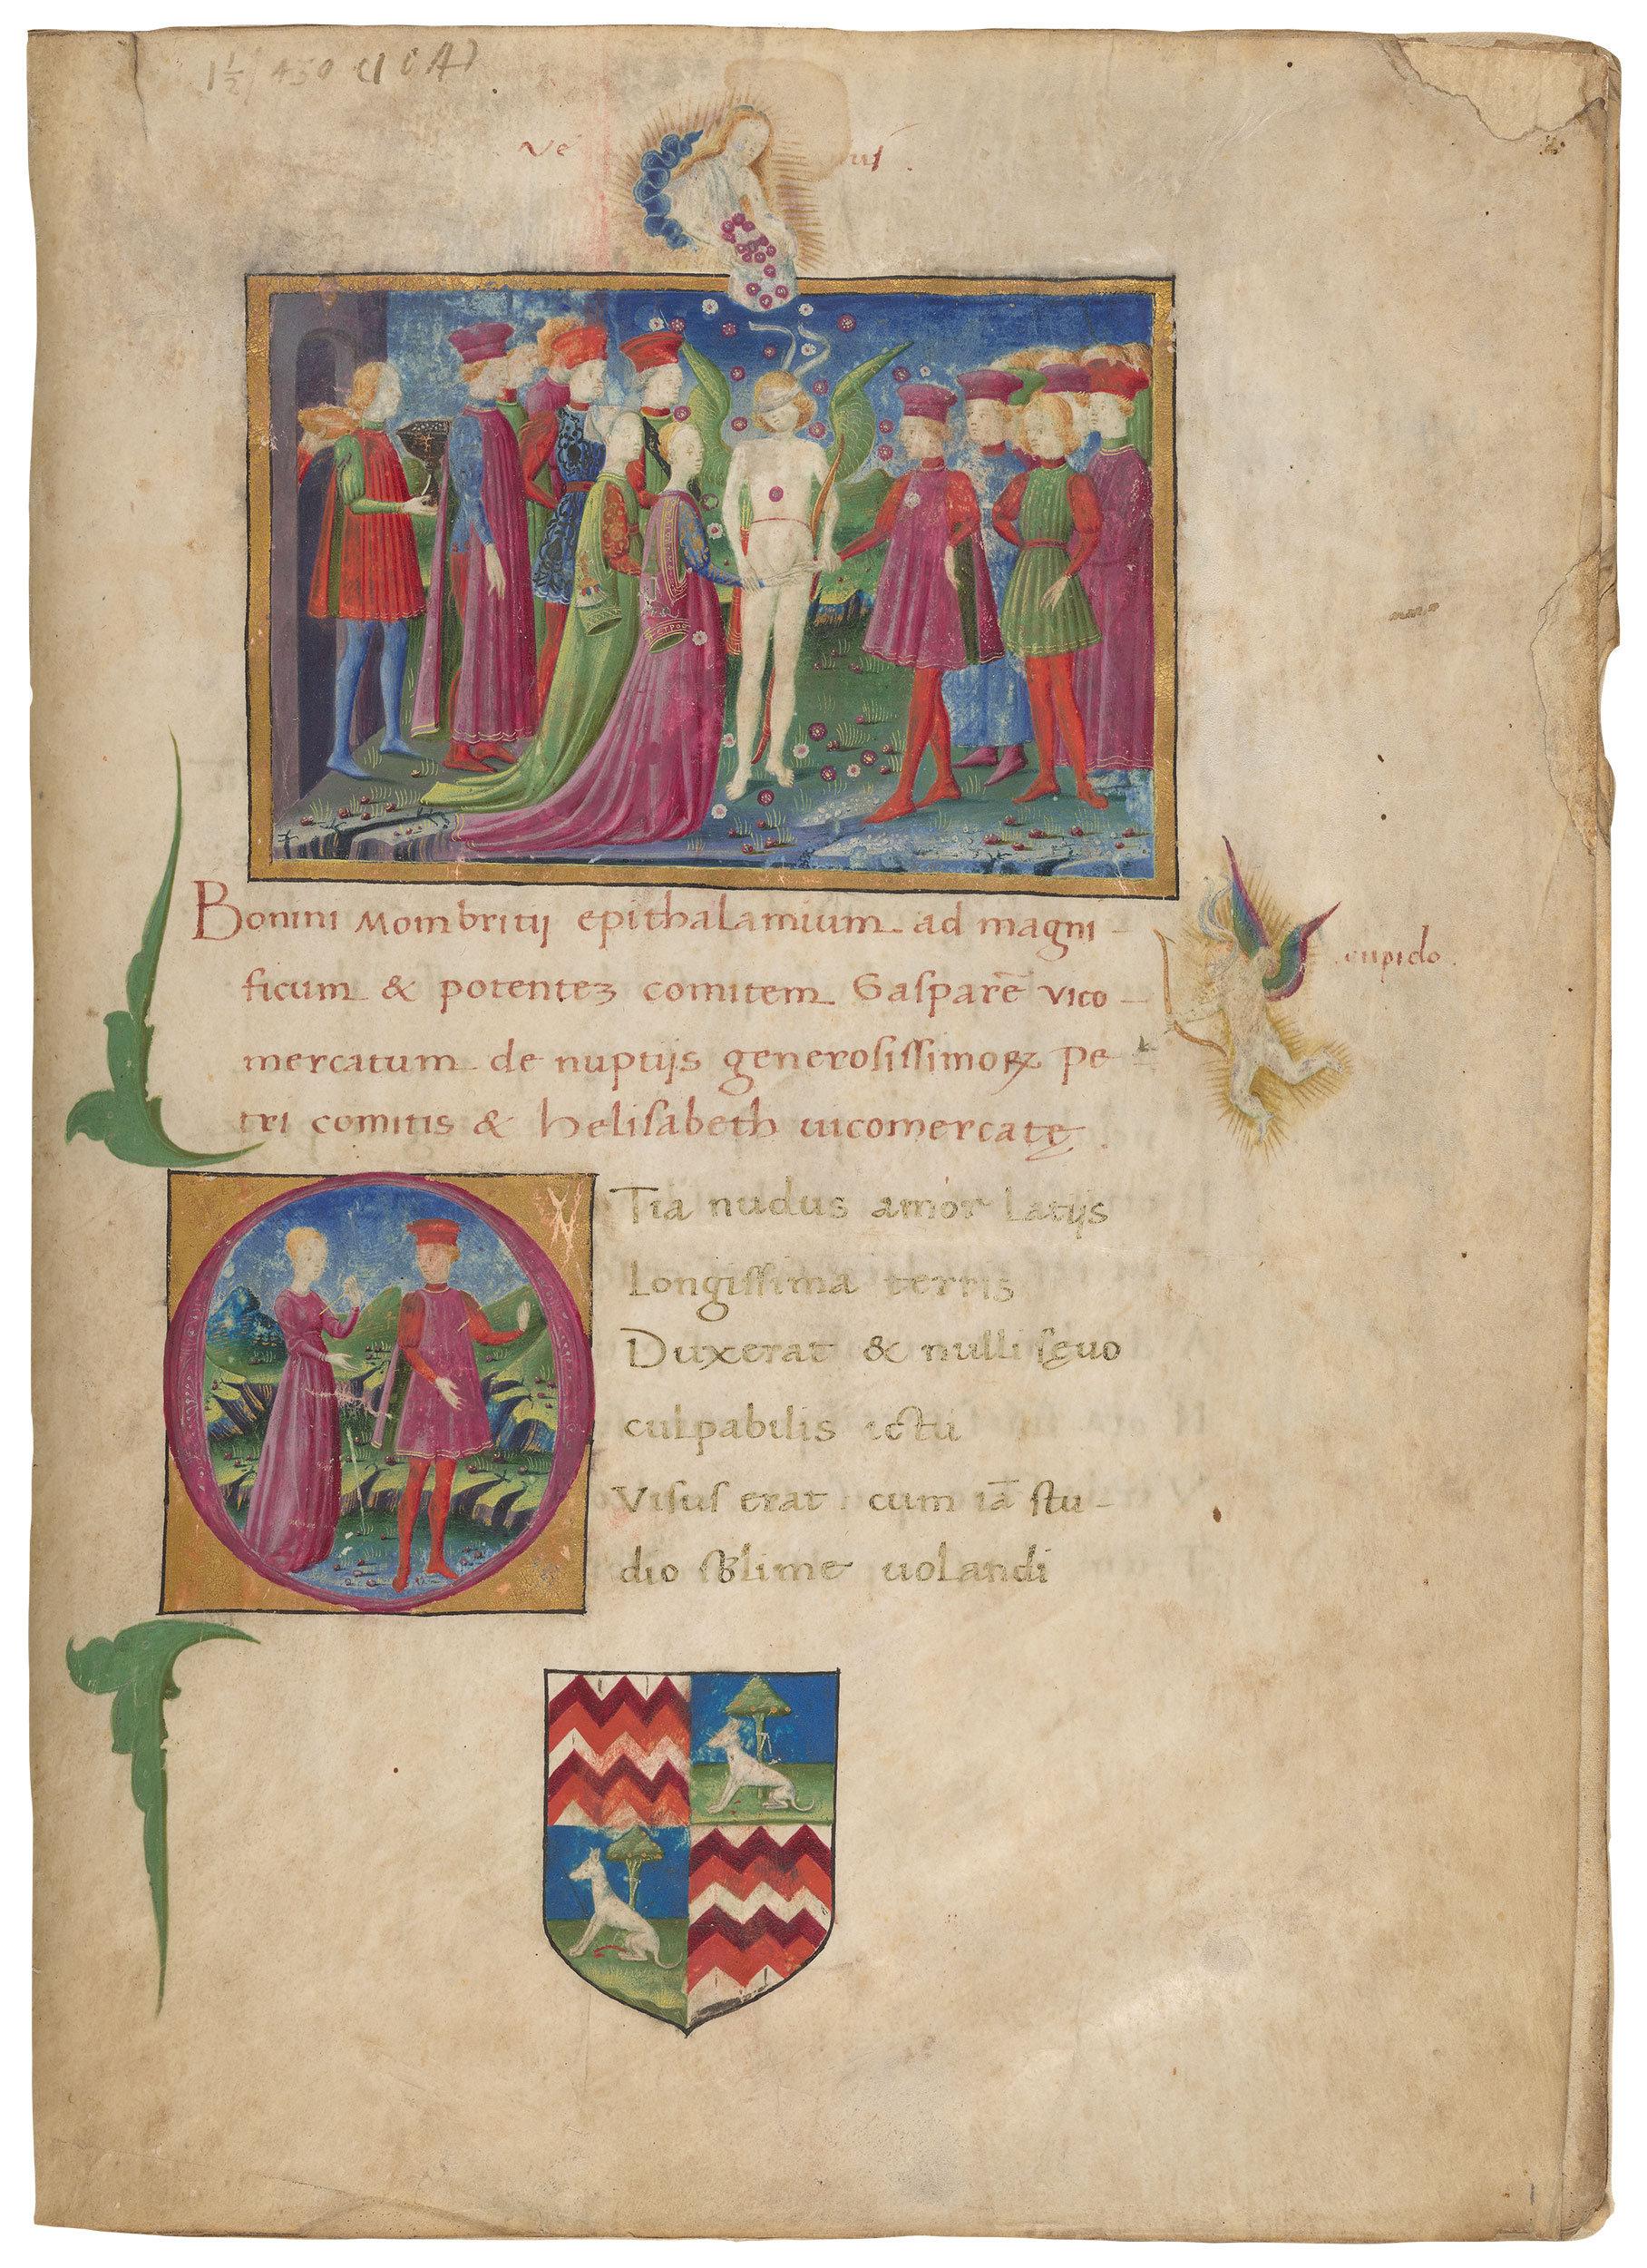 Ve nus.
Bonini Mombritij epithalamium ad magni-
ficum & potentez comitem Gasparē vico-
mercatum de nuptijs generosissimoꝝ Pe-
tri comitis & helisabeth uicomercatę.
cupido.
OTia nudus amor Latijs
Longissima terris
Duxerat & nulli sęuo
culpabilis ictu
Visus erat cum iā stu-
dio sublime uolandi